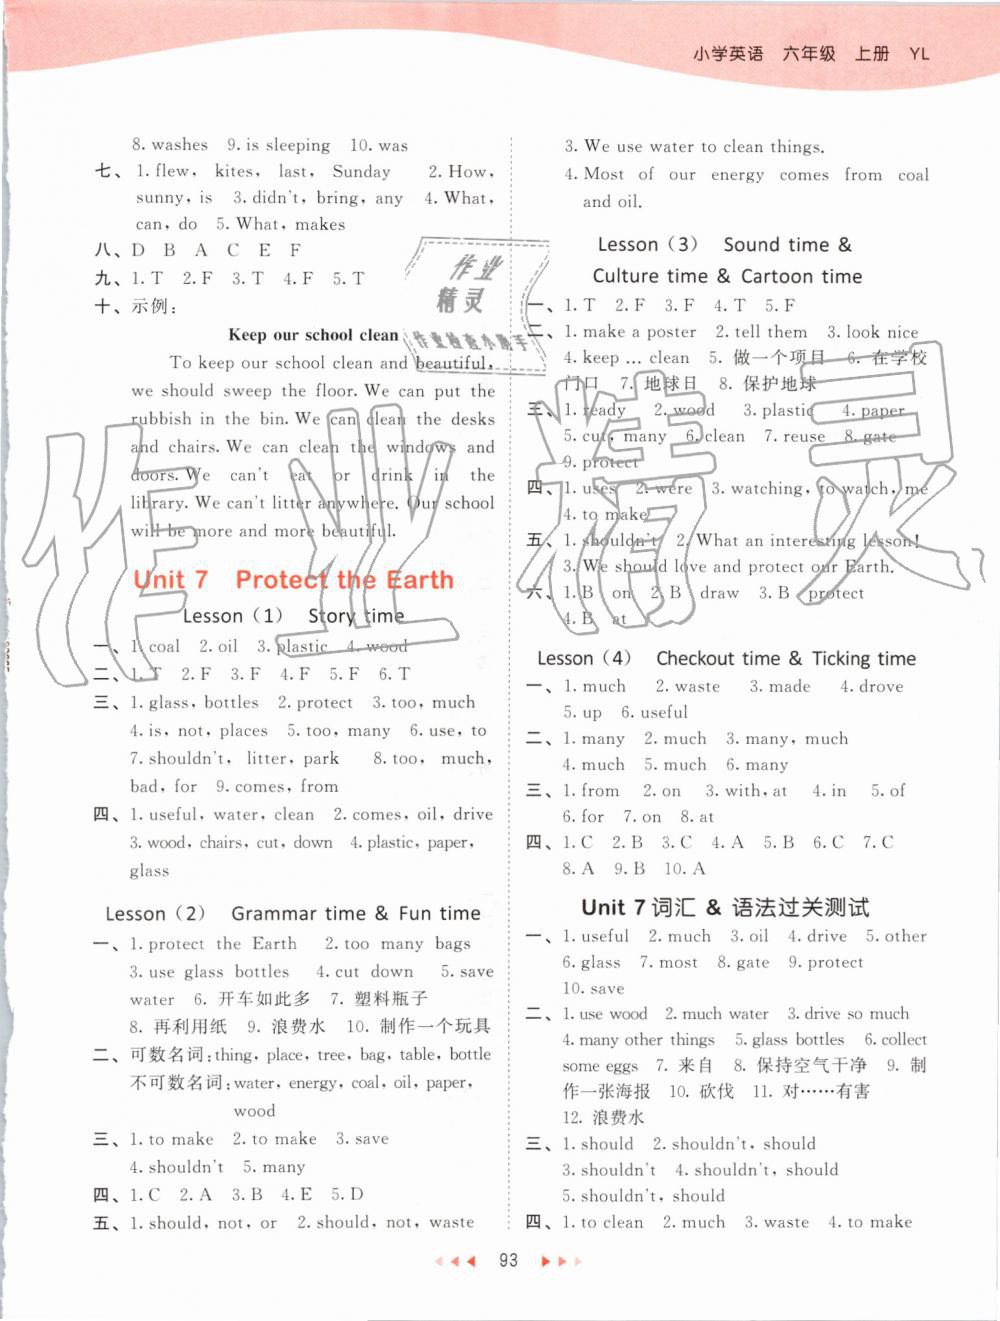 小学英语 六年级 上册 YL
8. washes 9. is sleeping 10. was
七、1. flew, kites, last, Sunday 2. How,
sunny, is 3. didn't, bring, any 4. What,
can, do 5. What, makes
八、D B A C E F
九、1. T 2. F 3. T 4. F 5. T
十、示例:
Keep our school clean
To keep our school clean and beautiful,
we should sweep the floor. We can put the
rubbish in the bin. We can clean the desks
and chairs. We can clean the windows and
doors. We can't eat or drink in the
library. We can't litter anywhere. Our school
will be more and more beautiful.
Unit 7 Protect the Earth
Lesson (1) Story time
一、1. coal 2. oil 3. plastic 4. wood
二、1. T 2. F 3. F 4. F 5. F 6. T
三、1. glass, bottles 2. protect 3. too, much
4. is, not, places 5. too, many 6. use, to
7. shouldn't, litter, park 8. too, much,
bad, for 9. comes, from
四、1. useful, water, clean 2. comes, oil, drive
3. wood, chairs, cut, down 4. plastic, paper,
glass
Lesson (2) Grammar time & Fun time
一、1. protect the Earth 2. too many bags
3. use glass bottles 4. cut down 5. save
water 6. 开车如此多 7. 塑料瓶子
8. 再利用纸 9. 浪费水 10. 制作一个玩具
二、可数名词:thing, place, tree, bag, table, bottle
不可数名词:water, energy, coal, oil, paper,
wood
三、1. to make 2. to make 3. save
4. shouldn't 5. many
四、1. C 2. A 3. B 4. E 5. D
五、1. should, not, or 2. should, not, waste
3. We use water to clean things.
4. Most of our energy comes from coal
and oil.
Lesson (3) Sound time &
Culture time & Cartoon time
一、1. T 2. F 3. F 4. T 5. F
二、1. make a poster 2. tell them 3. look nice
4. keep ... clean 5. 做一个项目 6. 在学校
门口 7. 地球日 8. 保护地球
三、1. ready 2. wood 3. plastic 4. paper
5. cut, many 6. clean 7. reuse 8. gate
9. protect
四、1. uses 2. were 3. watching, to watch, me
4. to make
五、1. shouldn't 2. What an interesting lesson!
3. We should love and protect our Earth.
六、1. B on 2. B draw 3. B protect
4. B at
Lesson (4) Checkout time & Ticking time
一、1. much 2. waste 3. made 4. drove
5. up 6. useful
二、1. many 2. much 3. many, much
4. much 5. much 6. many
三、1. from 2. on 3. with, at 4. in 5. of
6. for 7. on 8. at
四、1. C 2. B 3. C 4. A 5. B 6. B 7. C
8. A 9. B 10. A
Unit 7 词汇 & 语法过关测试
一、1. useful 2. much 3. oil 4. drive 5. other
6. glass 7. most 8. gate 9. protect
10. save
二、1. use wood 2. much water 3. drive so much
4. many other things 5. glass bottles 6. collect
some eggs 7. 来自 8. 保持空气干净 9. 制
作一张海报 10. 砍伐 11. 对……有害
12. 浪费水
三、1. should 2. shouldn't, should
3. shouldn't 4. shouldn't, should
5. shouldn't, should
四、1. to clean 2. much 3. waste 4. to make
93
作业
精灵
作业检查小帮手
作业精灵